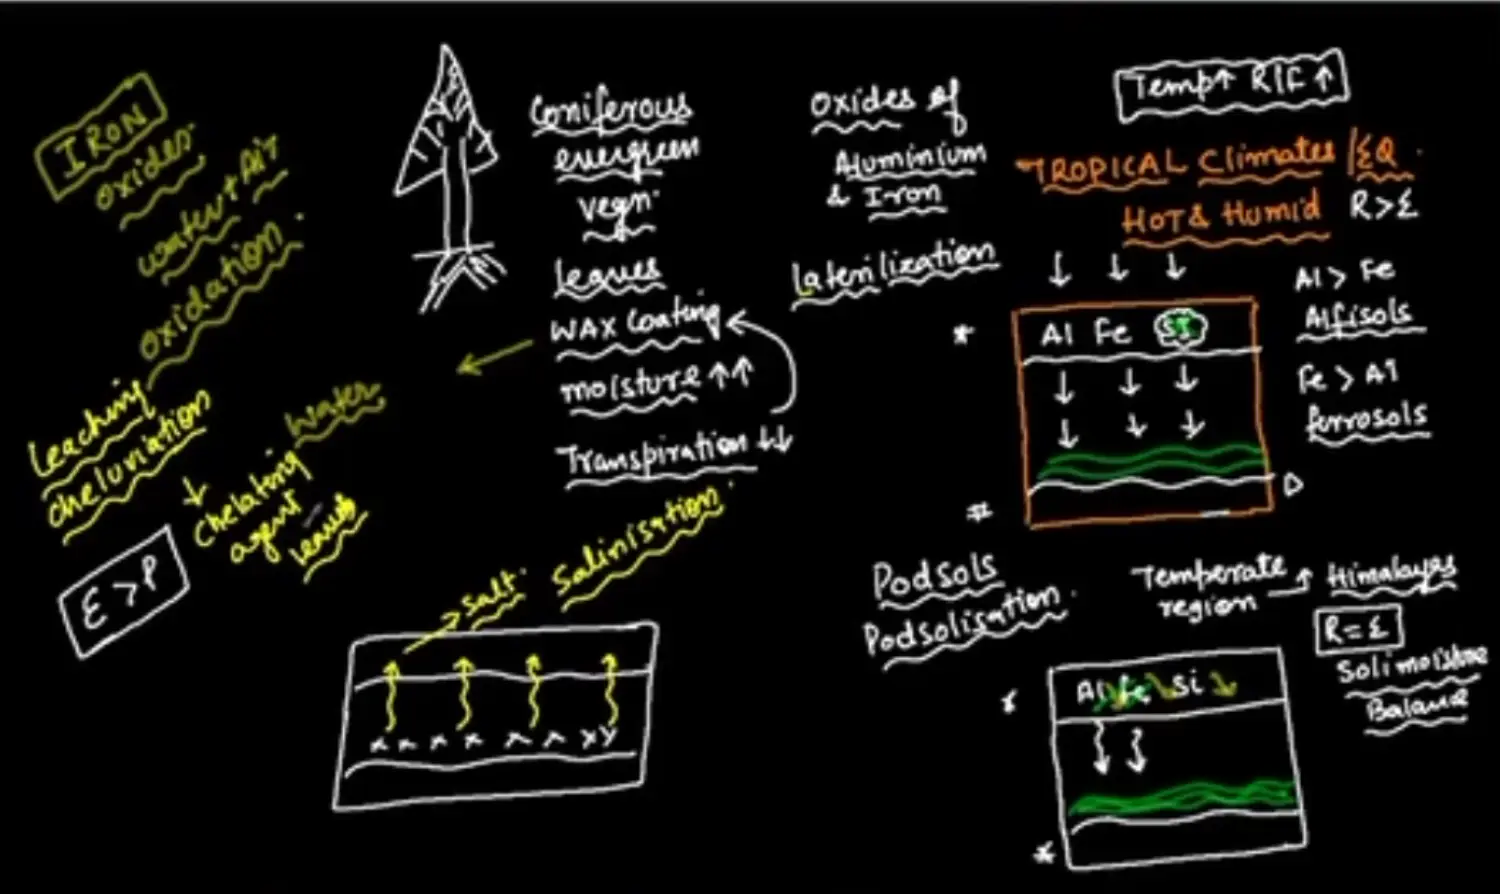 IRON
oxides.
water + Air
oxidation.
leaching
cheluviation
water
↓
chelating
agent
leaves
E > P
coniferous
evergreen
vegn.
leaves
WAX coating
moisture ↑↑
Transpiration ↓↓
Salinisation.
salt.
oxides of
Aluminium
& Iron
Laterilization
Temp↑ R/F ↑
TROPICAL Climates / EQ.
HOT & Humid R > E
Al Fe Si
Al > Fe
Alfisols
Fe > Al
ferrosols
Podsols
Podsolisation.
Temperate
region
Himalayas
R = E
Soli moisture
Balance
Al Fe Si